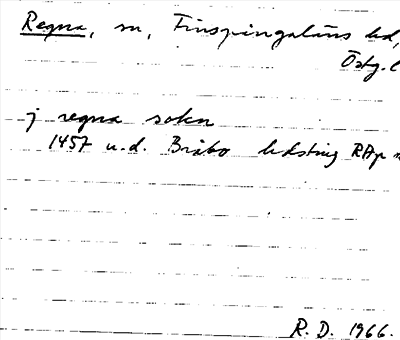 Regna, sn, Finspångaläns hd,
Östg.l
j regna sokn
1457 u.d. Bråbo hdsting RAp
R. D. 1966.